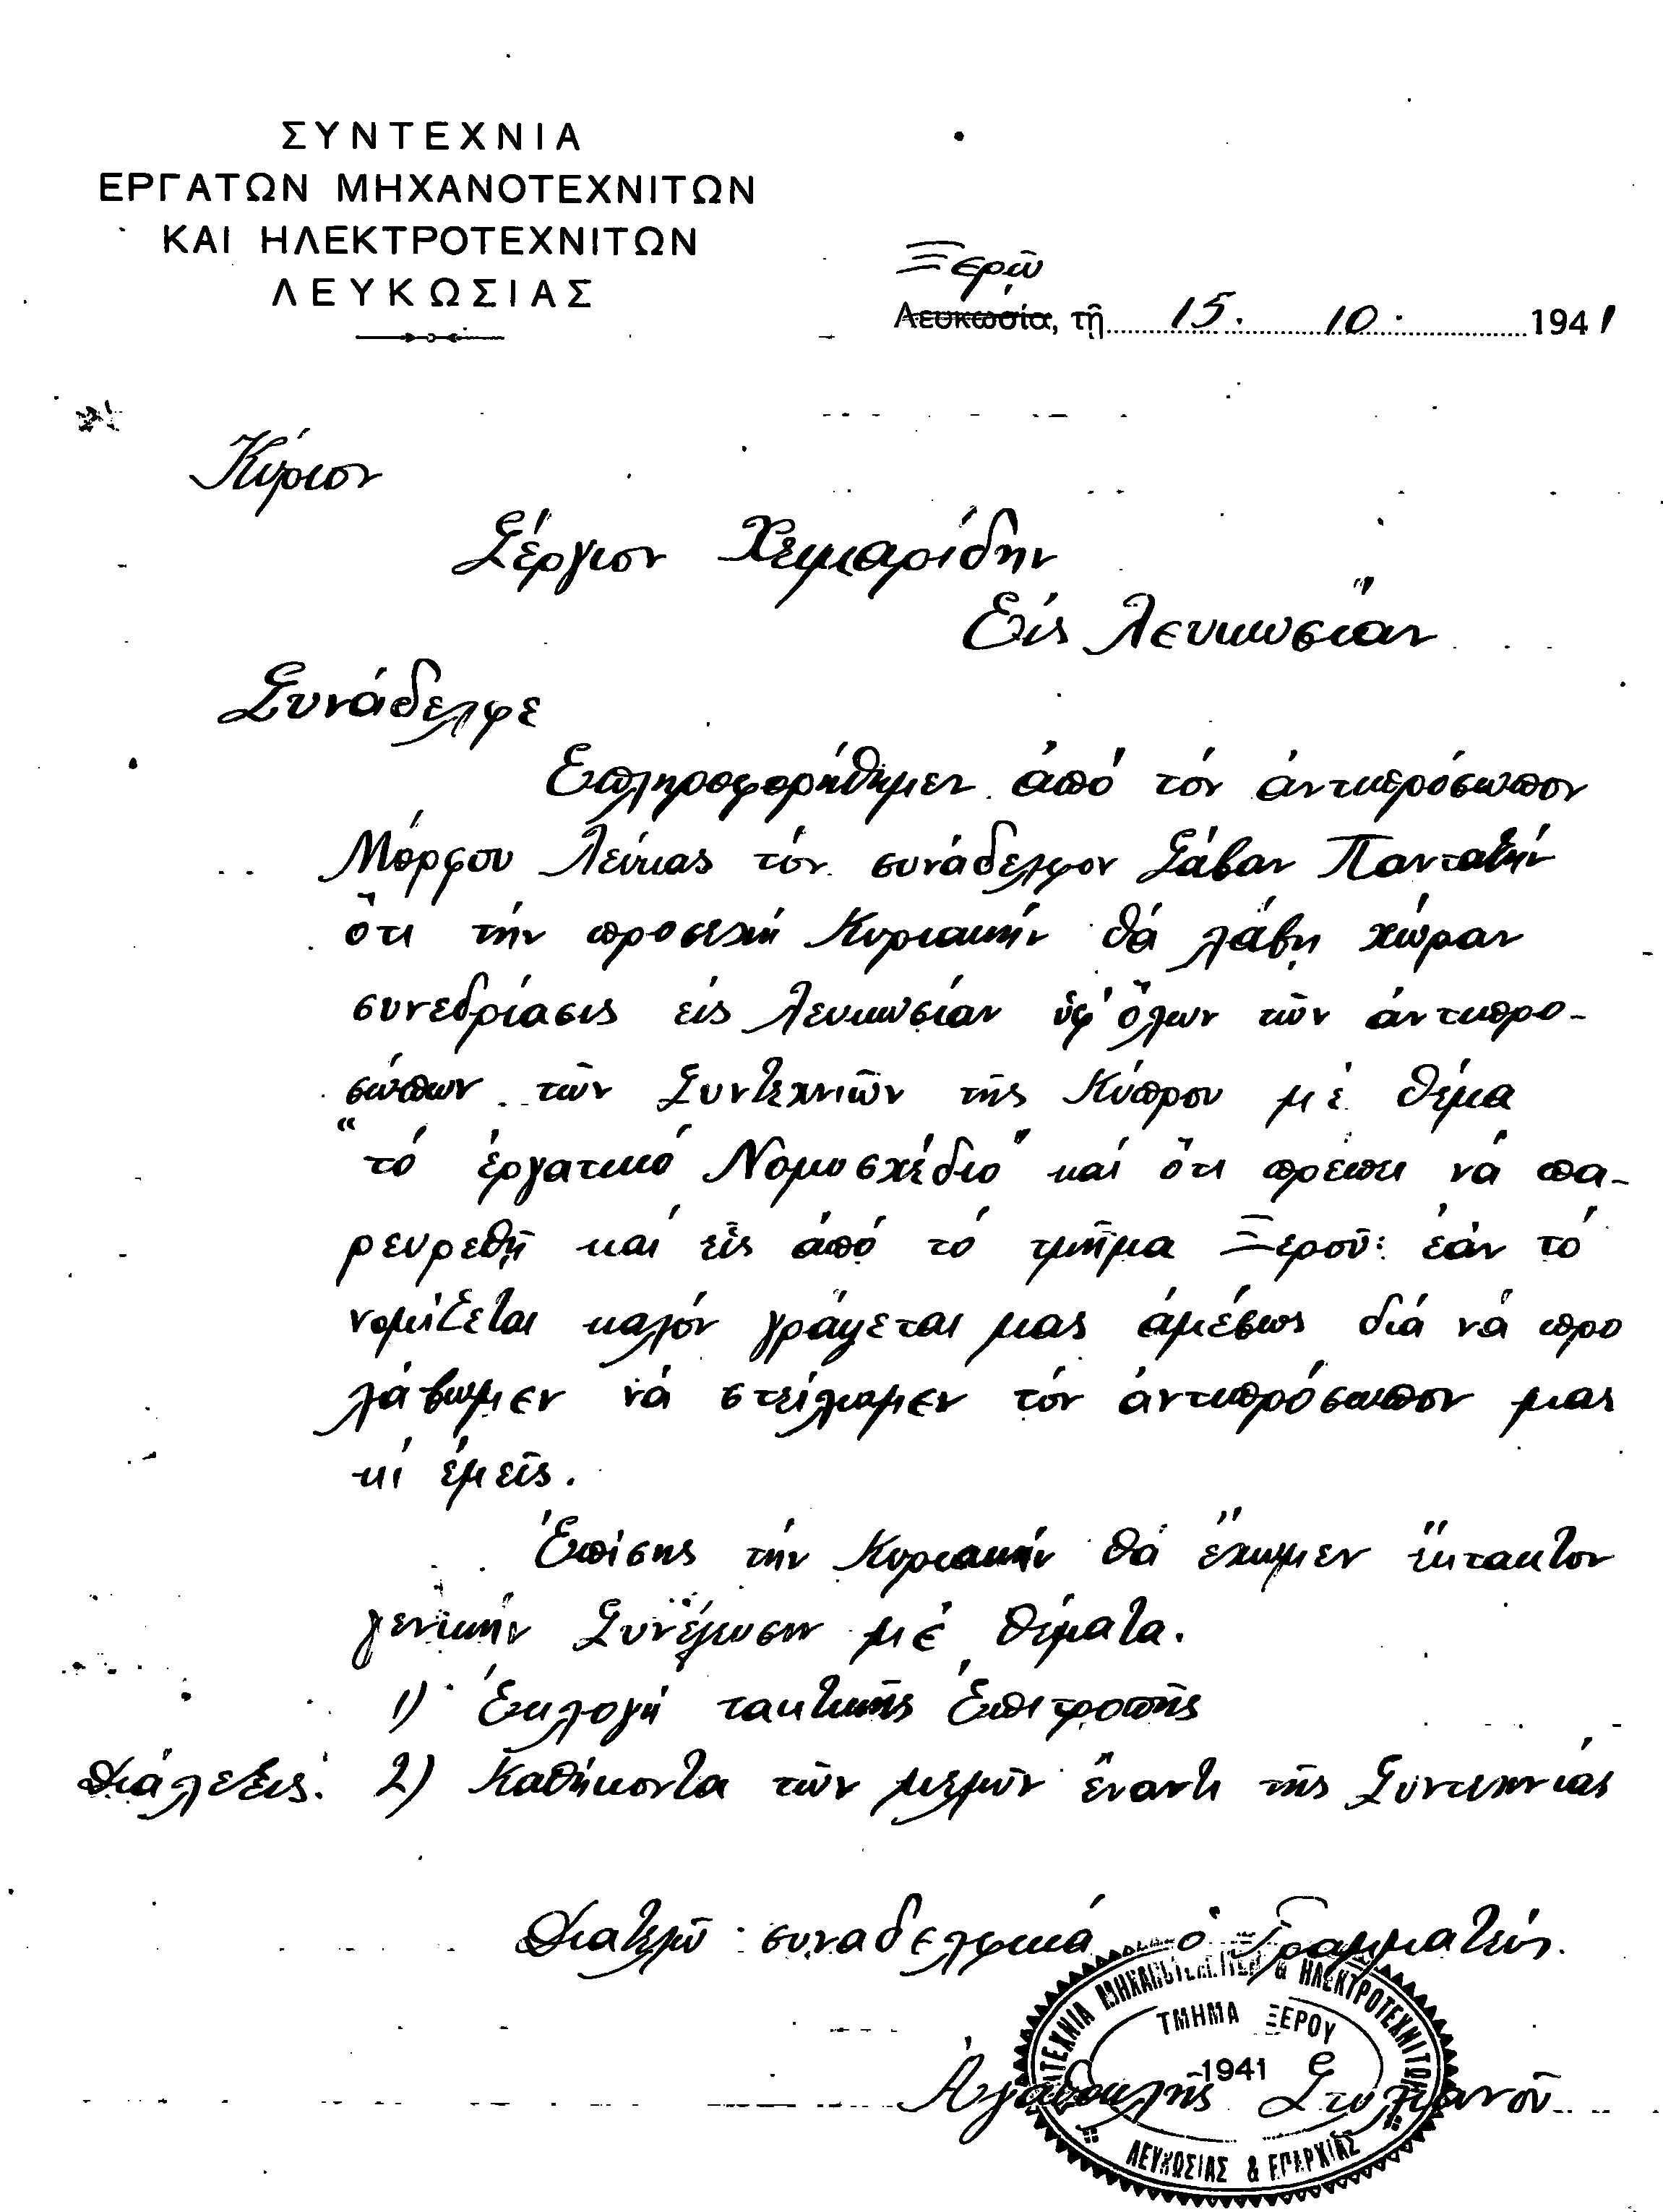 ΣΥΝΤΕΧΝΙΑ
ΕΡΓΑΤΩΝ ΜΗΧΑΝΟΤΕΧΝΙΤΩΝ
ΚΑΙ ΗΛΕΚΤΡΟΤΕΧΝΙΤΩΝ
ΛΕΥΚΩΣΙΑΣ
Ξερῷ
Λευκωσία, τῇ 15. 10. 1941
Κύριον
Σέργιον Χειμαρίδην
Εἰς Λευκωσίαν
Συνάδελφε
Επληροφορήθημεν ἀπό τόν ἀντιπρόσωπον
Μόρφου Λεύκας τόν συνάδελφον Σάβαν Πανταζήν
ὅτι τήν προσεχή Κυριακήν θά λάβη χώραν
συνεδρίασις εἰς Λευκωσίαν ὑφ' ὅλων τῶν ἀντιπρο-
σώπων τῶν Συντεχνιῶν τῆς Κύπρου μέ θέμα
"τό ἐργατικό Νομοσχέδιο" καί ὅτι πρέπει νά πα-
ρευρεθῇ καί εἷς ἀπό τό τμῆμα Ξεροῦ: ἐάν τό
νομίζεται καλόν γράψεται μας ἀμέσως διά νά προ
λάβωμεν νά στείλωμεν τόν ἀντιπρόσωπον μας
κι ἐμεῖς.
Ἐπίσης τήν Κυριακήν θά ἔχωμεν ἔκτακτον
γενικήν Συνέλευσιν μέ θέματα.
1) Ἐκλογή τακτικῆς Ἐπιτροπῆς
Διάλεξις: 2) Καθήκοντα τῶν μελῶν ἔναντι τῆς Συντεχνίας
Διατελῶ συναδελφικά ὁ Γραμματεύς.
ΣΥΝΤΕΧΝΙΑ ΜΗΧΑΝΟΤΕΧΝΙΤΩΝ & ΗΛΕΚΤΡΟΤΕΧΝΙΤΩΝ
ΤΜΗΜΑ ΞΕΡΟΥ
-1941
Ἀγαθοκλῆς Στυλιανοῦ
ΛΕΥΚΩΣΙΑΣ & ΕΠΑΡΧΙΑΣ